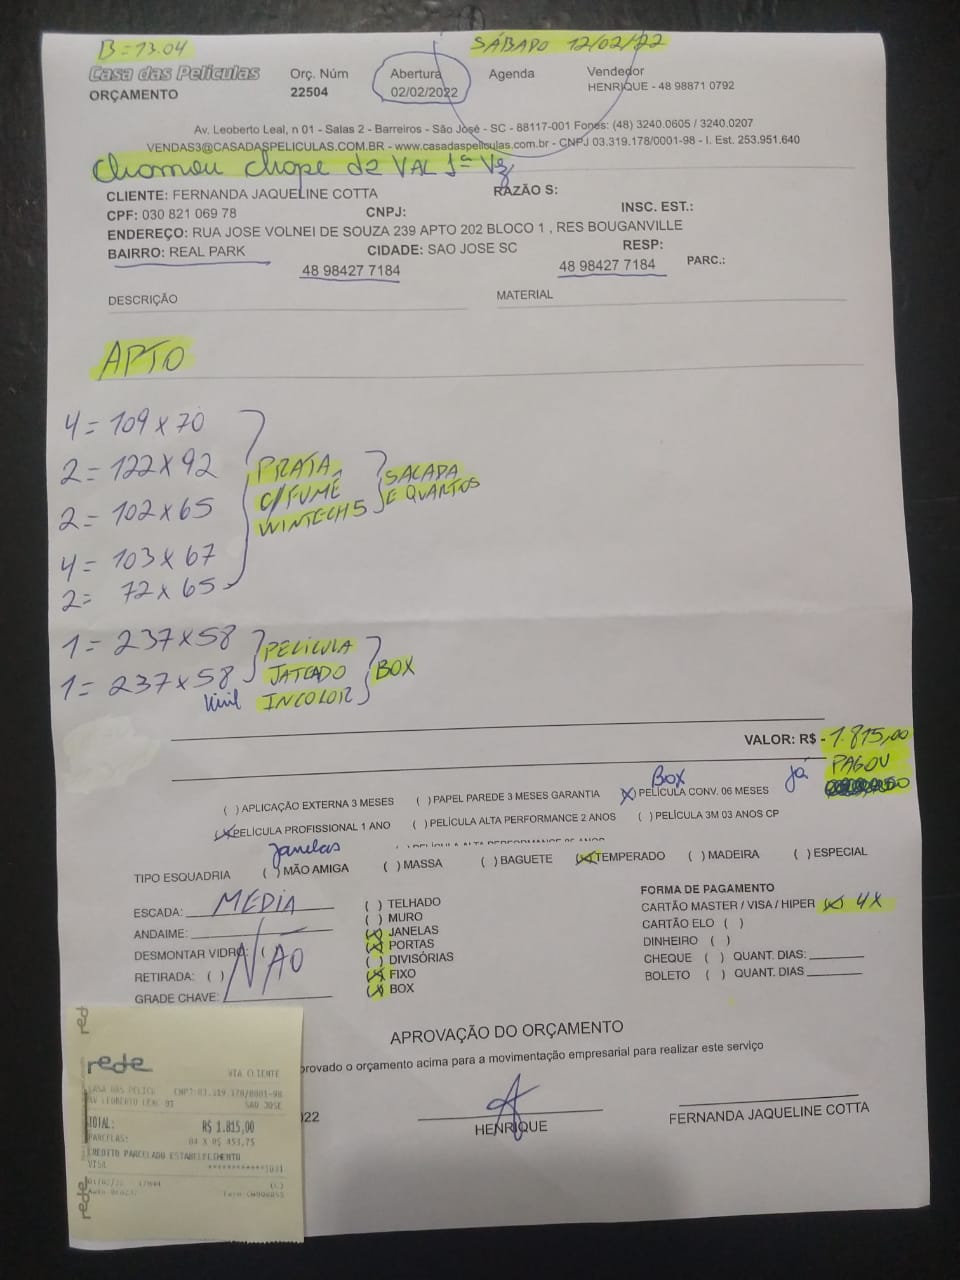 B = 13.04
SÁBADO 12/02/22
Casa das Películas
ORÇAMENTO
Orç. Núm
22504
Abertura
02/02/2022
Agenda
Vendedor
HENRIQUE - 48 98871 0792
Av. Leoberto Leal, n 01 - Salas 2 - Barreiros - São José - SC - 88117-001 Fones: (48) 3240.0605 / 3240.0207
VENDAS3@CASADASPELICULAS.COM.BR - www.casadaspeliculas.com.br - CNPJ 03.319.178/0001-98 - I. Est. 253.951.640
Chamou chope de VAL 1ª Vez
CLIENTE: FERNANDA JAQUELINE COTTA RAZÃO S:
CPF: 030 821 069 78 CNPJ: INSC. EST.:
ENDEREÇO: RUA JOSE VOLNEI DE SOUZA 239 APTO 202 BLOCO 1 , RES BOUGANVILLE
BAIRRO: REAL PARK CIDADE: SAO JOSE SC RESP:
48 98427 7184 48 98427 7184 PARC.:
DESCRIÇÃO MATERIAL
APTO
4 = 109 x 70
2 = 122 x 92
2 = 102 x 65
4 = 103 x 67
2 = 72 x 65
PRATA
C/FUMÊ
WINTECH 5
SACADA
E QUARTOS
1 = 237 x 58
1 = 237 x 58
PELÍCULA
JATEADO
INCOLOR
BOX
Vinil
VALOR: R$ - 1.815,00
já PAGOU
Box
( ) APLICAÇÃO EXTERNA 3 MESES ( ) PAPEL PAREDE 3 MESES GARANTIA (X) PELÍCULA CONV. 06 MESES
(X) PELÍCULA PROFISSIONAL 1 ANO ( ) PELÍCULA ALTA PERFORMANCE 2 ANOS ( ) PELÍCULA 3M 03 ANOS CP
Janelas
TIPO ESQUADRIA ( ) MÃO AMIGA ( ) MASSA ( ) BAGUETE (X) TEMPERADO ( ) MADEIRA ( ) ESPECIAL
ESCADA: MEDIA
ANDAIME:
DESMONTAR VIDRO: (
RETIRADA: ( )
GRADE CHAVE:
NÃO
( ) TELHADO
( ) MURO
(X) JANELAS
(X) PORTAS
( ) DIVISÓRIAS
(X) FIXO
(X) BOX
FORMA DE PAGAMENTO
CARTÃO MASTER / VISA / HIPER (X) 4X
CARTÃO ELO ( )
DINHEIRO ( )
CHEQUE ( ) QUANT. DIAS:
BOLETO ( ) QUANT. DIAS
APROVAÇÃO DO ORÇAMENTO
provado o orçamento acima para a movimentação empresarial para realizar este serviço
022
HENRIQUE
FERNANDA JAQUELINE COTTA
red
rede
VIA CLIENTE
CASA DAS PELICU CNPJ:03.319.178/0001-98
AV LEOBERTO LEAL 01 SAO JOSE
TOTAL: R$ 1.815,00
PARCELAS: 04 X R$ 453,75
CREDITO PARCELADO ESTABELECIMENTO
VISA
rede